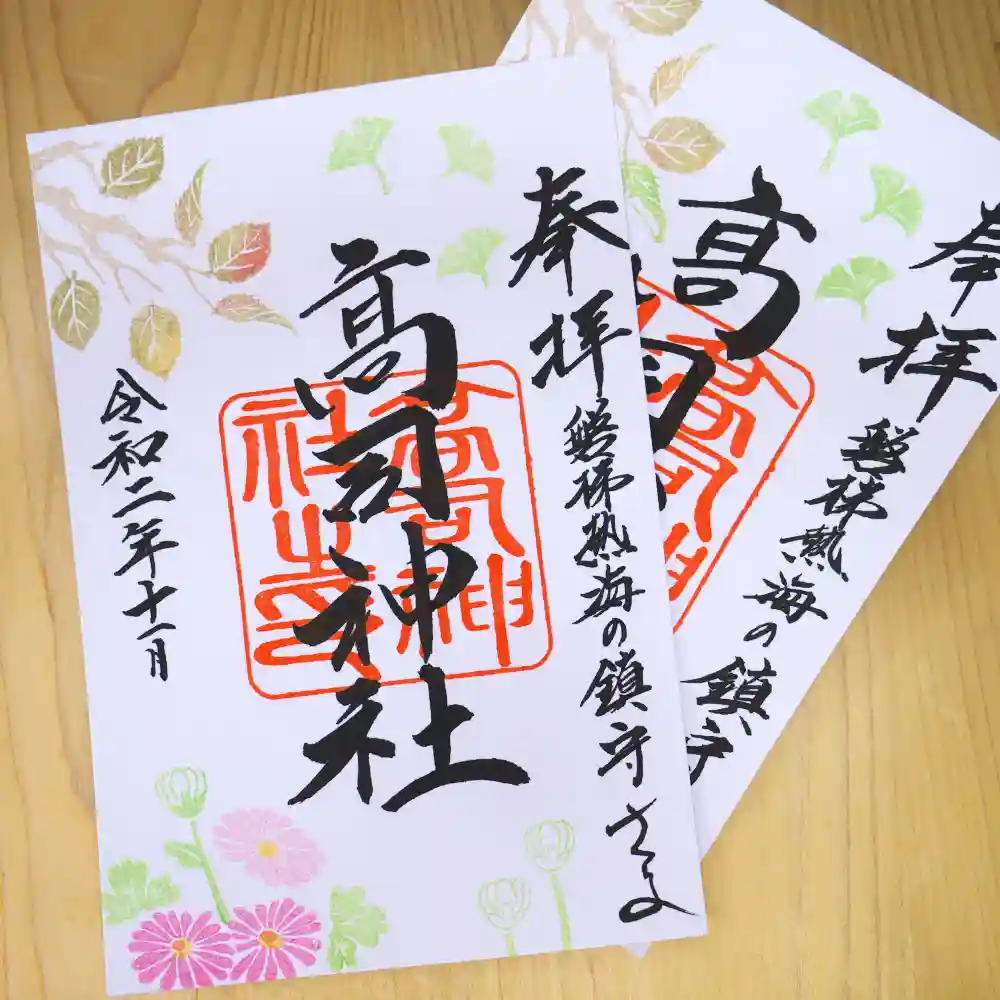 奉拝
磐梯熱海の鎮守さま
高司神社
高司神社之印
令和二年十一月
奉拝
磐梯熱海の鎮守
高司